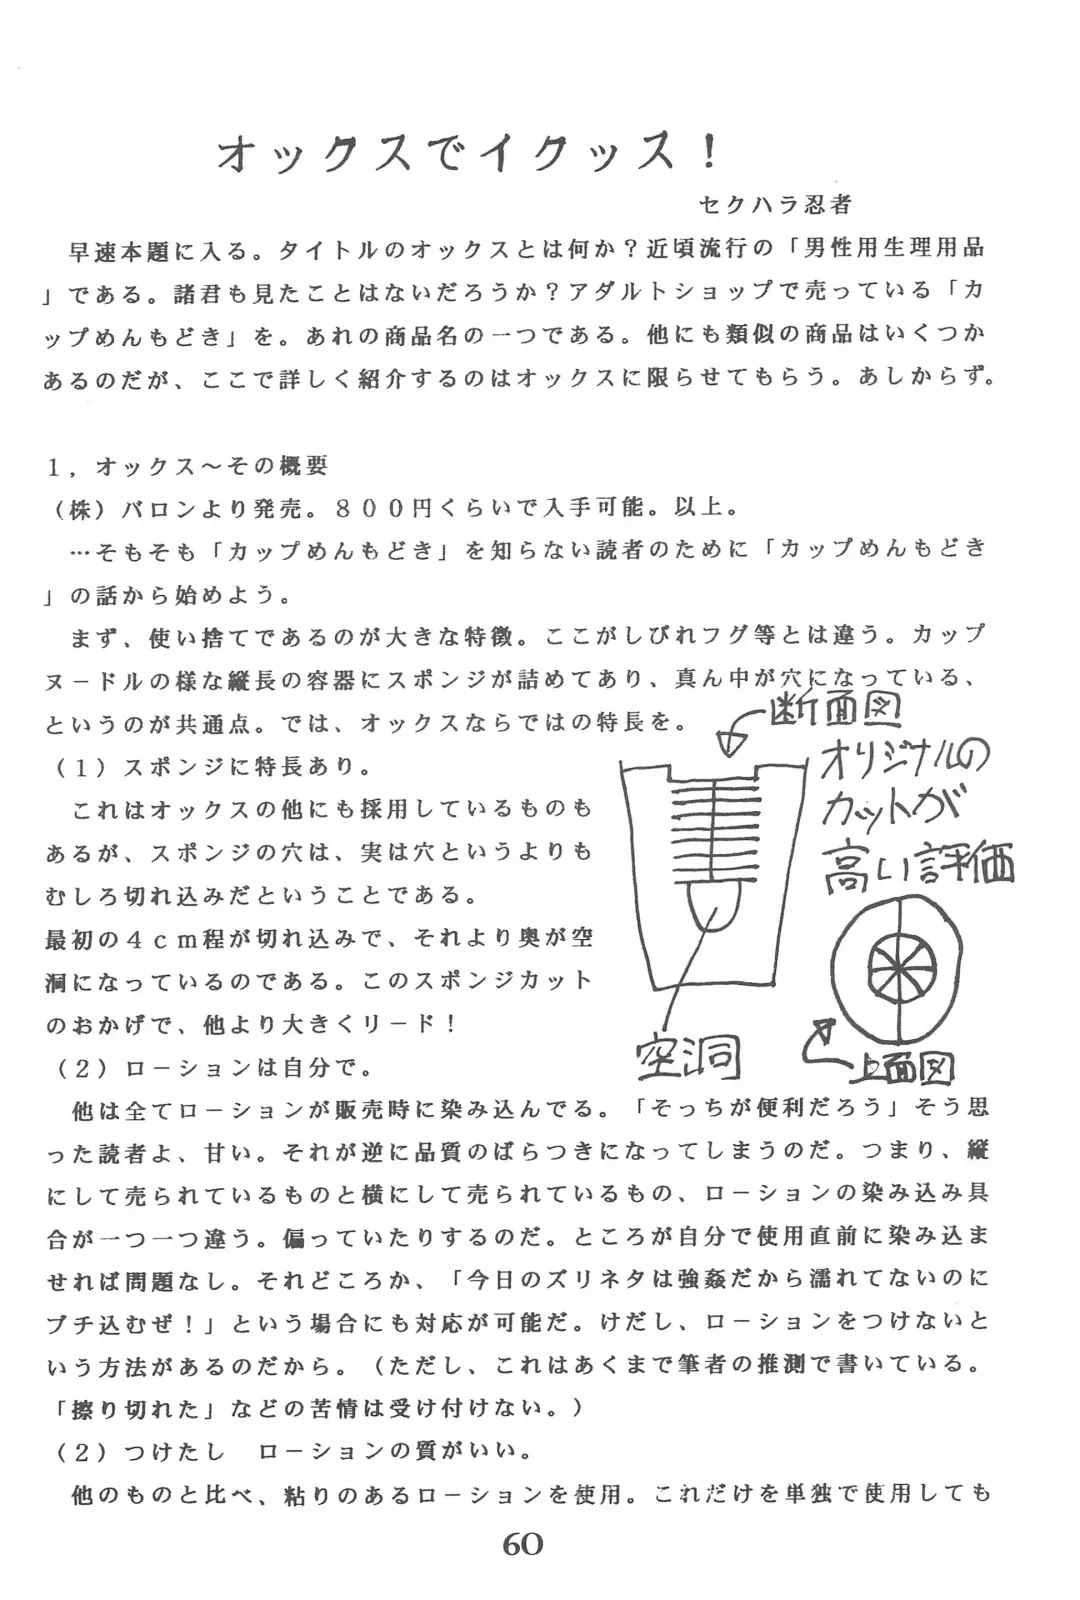 オックスでイクッス！
セクハラ忍者
早速本題に入る。タイトルのオックスとは何か？近頃流行の「男性用生理用品
」である。諸君も見たことはないだろうか？アダルトショップで売っている「カ
ップめんもどき」を。あれの商品名の一つである。他にも類似の商品はいくつか
あるのだが、ここで詳しく紹介するのはオックスに限らせてもらう。あしからず。
１，オックス～その概要
（株）バロンより発売。８００円くらいで入手可能。以上。
…そもそも「カップめんもどき」を知らない読者のために「カップめんもどき
」の話から始めよう。
まず、使い捨てであるのが大きな特徴。ここがしびれフグ等とは違う。カップ
ヌードルの様な縦長の容器にスポンジが詰めてあり、真ん中が穴になっている、
というのが共通点。では、オックスならではの特長を。
（１）スポンジに特長あり。
これはオックスの他にも採用しているものも
あるが、スポンジの穴は、実は穴というよりも
むしろ切れ込みだということである。
最初の４ｃｍ程が切れ込みで、それより奥が空
洞になっているのである。このスポンジカット
のおかげで、他より大きくリード！
断面図
オリジナルの
カットが
高い評価
空洞
上面図
（２）ローションは自分で。
他は全てローションが販売時に染み込んでる。「そっちが便利だろう」そう思
った読者よ、甘い。それが逆に品質のばらつきになってしまうのだ。つまり、縦
にして売られているものと横にして売られているもの、ローションの染み込み具
合が一つ一つ違う。偏っていたりするのだ。ところが自分で使用直前に染み込ま
せれば問題なし。それどころか、「今日のズリネタは強姦だから濡れてないのに
ブチ込むぜ！」という場合にも対応が可能だ。けだし、ローションをつけないと
いう方法があるのだから。（ただし、これはあくまで筆者の推測で書いている。
「擦り切れた」などの苦情は受け付けない。）
（２）つけたし　ローションの質がいい。
他のものと比べ、粘りのあるローションを使用。これだけを単独で使用しても
60